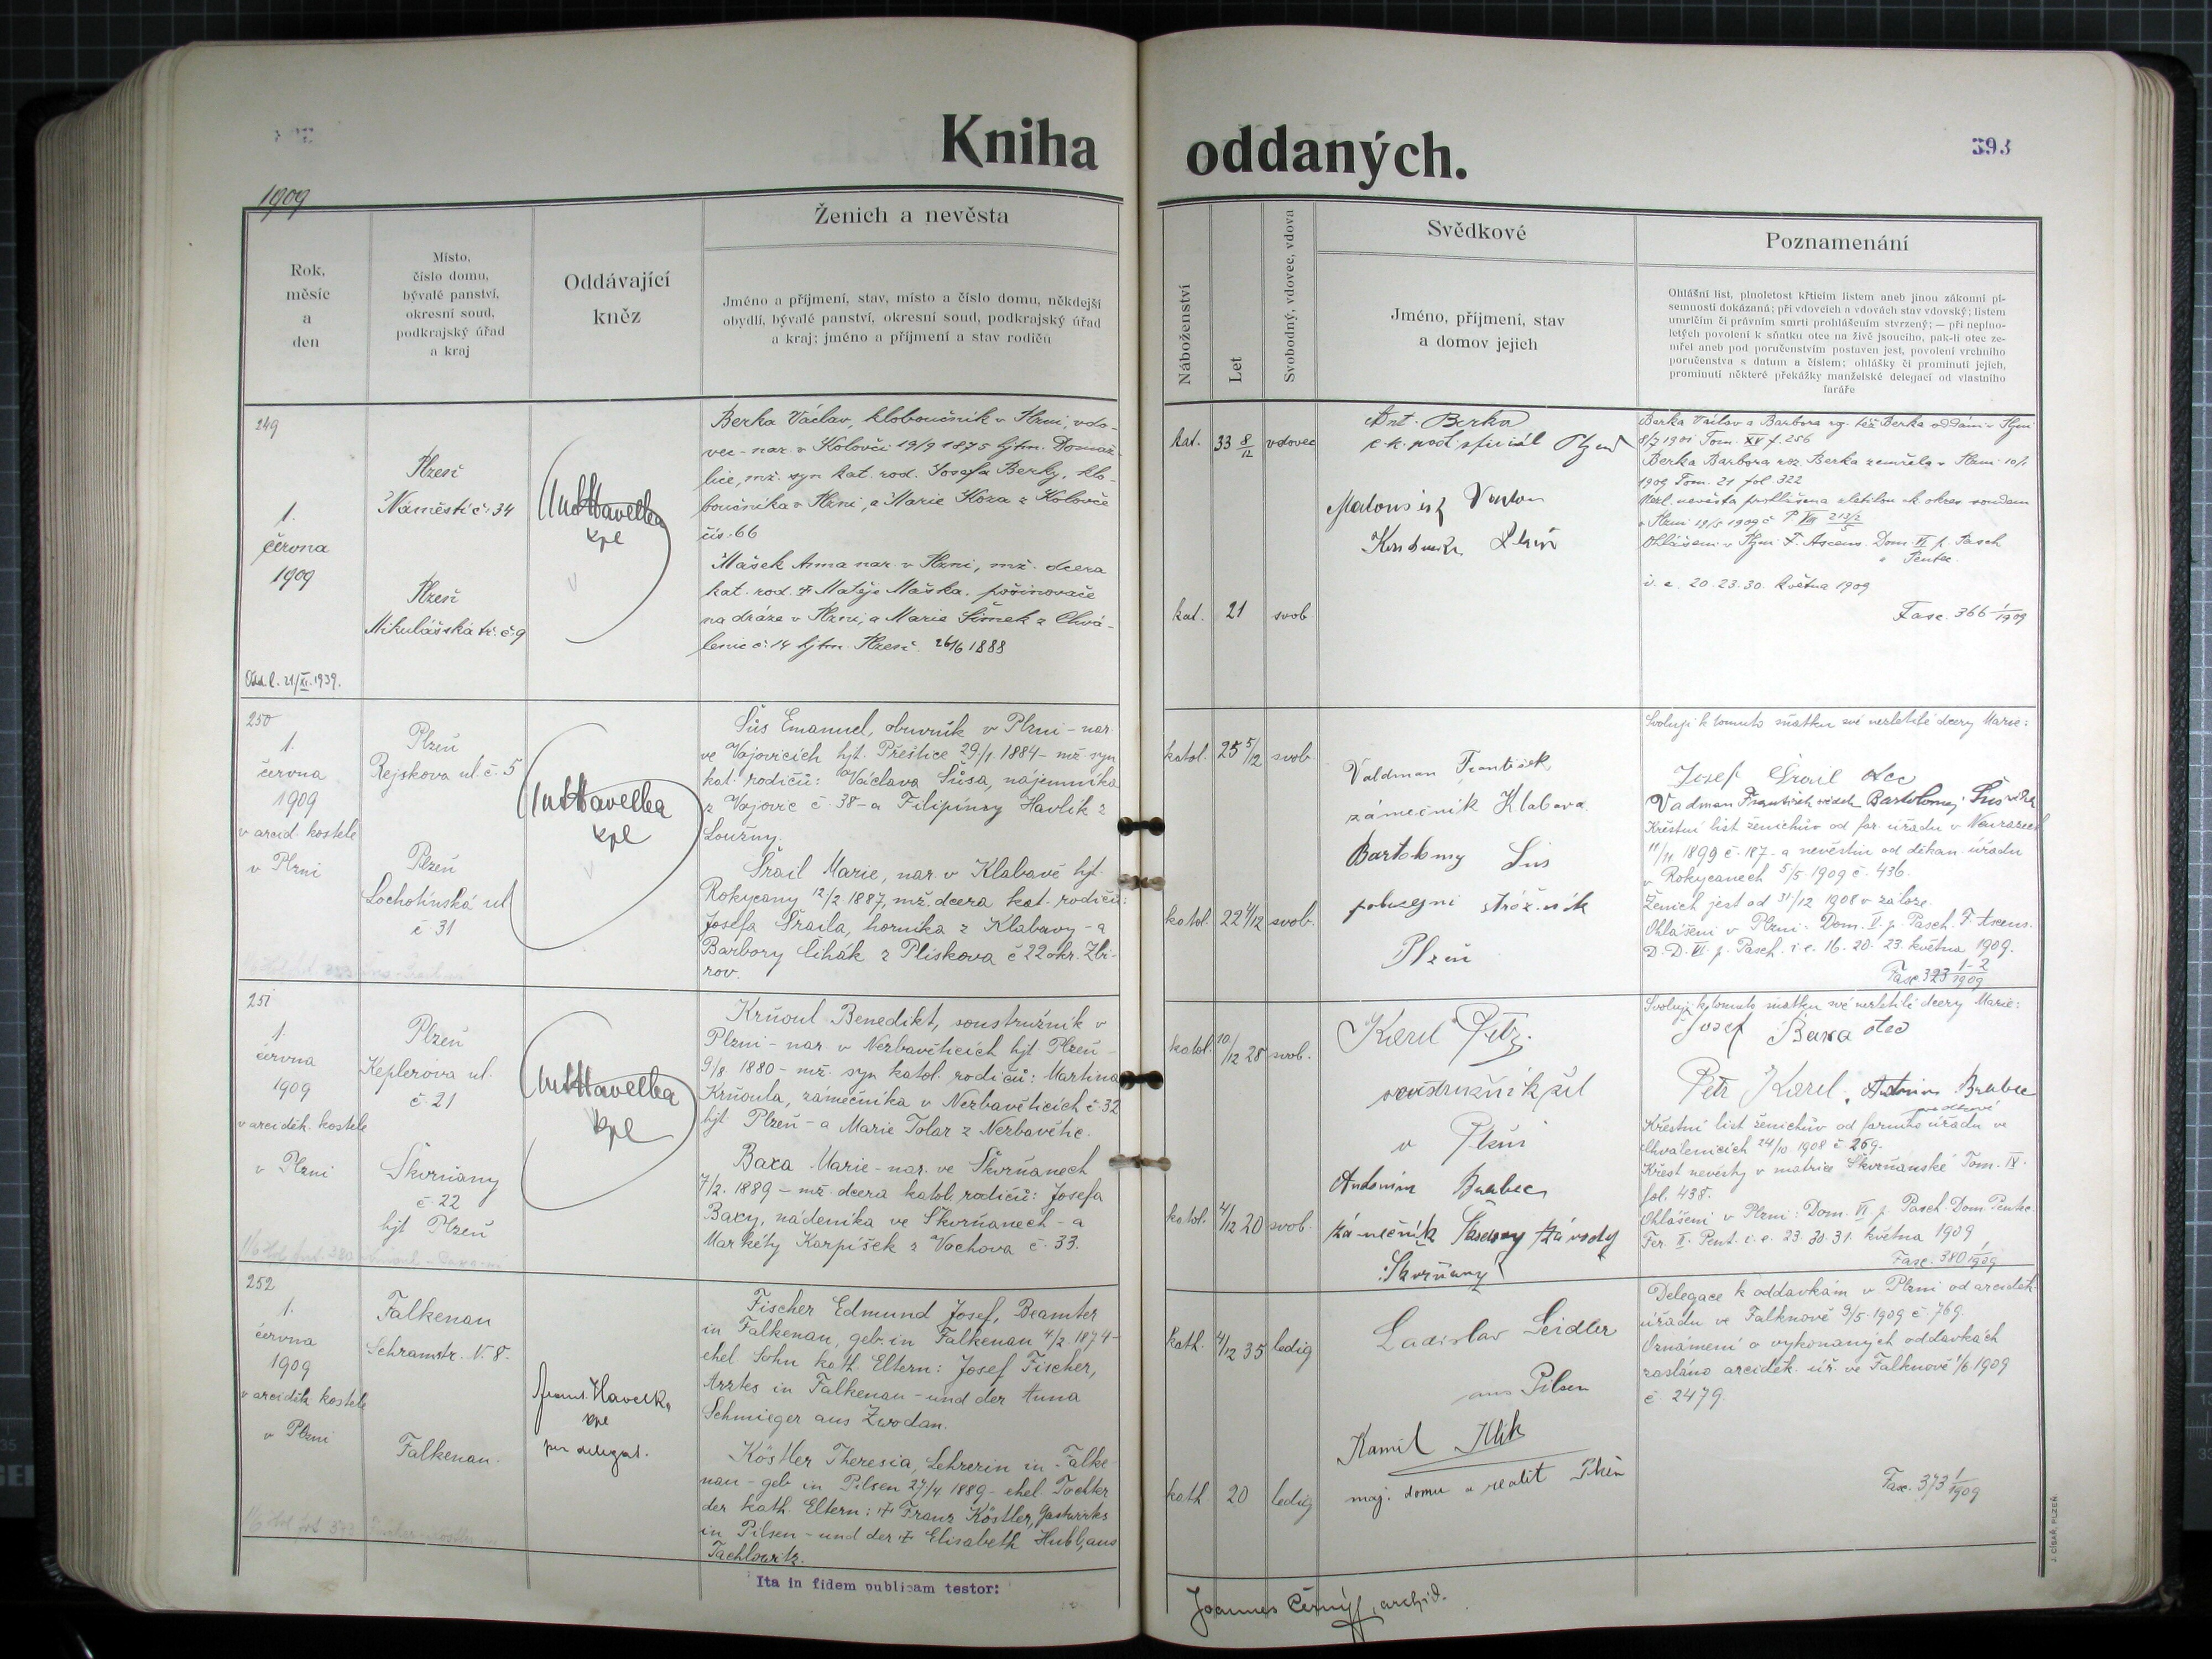 Kniha oddaných.
393
1909
Rok,
měsíc
a
den
Místo,
číslo domu,
bývalé panství,
okresní soud,
podkrajský úřad
a kraj
Oddávající
kněz
Ženich a nevěsta
Jméno a příjmení, stav, místo a číslo domu, někdejší
obydlí, bývalé panství, okresní soud, podkrajský úřad
a kraj; jméno a příjmení a stav rodičů
Náboženství
Let
Svobodný, vdovec, vdova
Svědkové
Jméno, příjmení, stav
a domov jejich
Poznamenání
Ohlášní list, plnoletost křticím listem aneb jinou zákonní pí-
semností dokázaná; při vdovcích a vdovách stav vdovský; listem
umrlčím či právním smrti prohlášením stvrzený; — při neplno-
letých povolení k sňatku otce na živě jsoucího, pak-li otec ze-
mřel aneb pod poručenstvím postaven jest, povolení vrchního
poručenstva s datum a číslem; ohlášky či prominutí jejich,
prominutí některé překážky manželské delegací od vlastního
faráře
249
1.
června
1909
Plzeň
Náměstí č. 34
Plzeň
Mikulášská tř. č. 9
Ant Havelka
kpl
Berka Václav, kloboučník v Plzni, vdo-
vec - nar. v Kolovči 19/9 1875 hjtm. Domaž-
lice, mž. syn kat. rod. Josefa Berky, klo-
boučníka v Plzni, a Marie Koza z Kolovče
čís. 66
Mašek Anna nar. v Plzni, mž. dcera
kat. rod. † Matěje Maška, pošinovače
na dráze v Plzni, a Marie Šimek z Chvá-
lenic č. 14 hjtm. Plzeň. 26/6 1888
kat. 33 8/12 vdovec
kat. 21 svob.
Ant. Berka
c. k. pošt. oficiál Plzeň
Berka Václav a Barbora roz. též Berka oddáni v Plzni
8/7 1901 Tom. XV f. 256
Berka Barbora roz. Berka zemřela v Plzni 10/1
1909 Tom. 21 fol 322
Nezl. nevěsta prohlášena zletilou ck okres. soudem
v Plzni 19/5 1909 č. P. VIII 213/2 5
Ohlášeni v Plzni F. Ascens. Dom. VI p. Pasch
" Pentec.
i. e. 20. 23. 30. května 1909
Fasc. 366 1/1909
21/XI. 1939.
250
1.
června
1909
v arcid. kostele
v Plzni
Plzeň
Rejskova ul. č. 5
Plzeň
Lochotínská ul
č 31
Ant Havelka
kpl
Šůs Emanuel, obuvník v Plzni - nar.
ve Vojovicích hjt. Přeštice 29/1. 1884 - mž. syn
kat. rodičů: Václava Šůsa, nájemníka
z Vojovic č 38 - a Filipiny Havlík z
Loužny.
Šrail Marie, nar. v Klabavě hjt.
Rokycany 12/2 1887, mž. dcera kat. rodičů:
Josefa Šraila, horníka z Klabavy - a
Barbory Čihák z Plískova č 22 okr. Zbi-
rov.
katol. 25 5/12 svob.
katol. 22 4/12 svob.
Valdman František
zámečník Klabava
Bartolomy Šůs
policejní strážník
Plzeň
Svoluji k tomuto sňatku své nezletilé dcery Marie:
Josef Šrail otec
Křestní list ženichův od far. úřadu v
11/11 1899 č. 187 - a nevěstin od děkan. úřadu
v Rokycanech 5/5 1909 č. 436.
Ženich jest od 31/12 1908 v záloze.
Ohlášeni v Plzni: Dom. V p. Pasch. F. Ascens.
D. D. VI p. Pasch. i. e. 16. 20. 23. května 1909.
Fasc. 323 1-2/1909
251
1.
června
1909
v arciděk. kostele
v Plzni
Plzeň
Keplerova ul.
č. 21
Škvrňany
č 22
hjt Plzeň
Ant Havelka
kpl
Krňoul Benedikt, soustružník v
Plzni - nar. v Nezbavěticích hjt Plzeň -
9/8 1880 - mž. syn katol. rodičů: Martina
Krňoula, zámečníka v Nezbavěticích č 32
hjt Plzeň - a Marie Tolar z Nezbavětic.
Baxa Marie - nar. ve Škvrňanech
7/2. 1889 - mž. dcera katol. rodičů: Josefa
Baxy, nádeníka ve Škvrňanech - a
Markéty Karpíšek z Vochova č. 33.
katol. 10/12 28 svob.
katol. 4/12 20 svob.
Karel Petr.
soustružník žel
v Plzni
Antonín Brabec
zámečník Škodovy závody
Škvrňany
Svoluji k tomuto sňatku své nezletilé dcery Marie:
Josef Baxa otec
Petr Karel, Antonín Brabec
svědkové
Křestní list ženichův od farního úřadu ve
Chválenicích 24/10 1908 č 269.
Křest nevěsty v matrice Škvrňanské Tom. IX.
fol. 438.
Ohlášeni v Plzni: Dom. VI p. Pasch. Dom. Pentec.
Fer. II. Pent. i. e. 23. 30. 31. května 1909
Fasc. 380 1/1909
252
1.
června
1909
v arciděk. kostele
v Plzni
Falkenau
Schramstr. N. 8.
Falkenau.
Frant. Havelka
kpl
per delegat.
Fischer Edmund Josef, Beamter
in Falkenau, geb. in Falkenau 4/2 1874 -
ehel. Sohn kath. Eltern: Josef Fischer,
Arztes in Falkenau - und der Anna
Schmieger aus Zwodau.
Köstler Theresia, Lehrerin in Falke-
nau - geb. in Pilsen 27/4 1889 - ehel. Tochter
der kath. Eltern: † Franz Köstler, Gastwirts
in Pilsen - und der † Elisabeth Hubl, aus
Tachlowitz.
kath. 4/12 35 ledig
kath. 20 ledig
Ladislav Seidler
aus Pilsen
Kamil Klik
maj. domu a realit Plzeň
Delegace k oddavkám v Plzni od arciděk.
úřadu ve Falknově 9/5 1909 č. 769.
Oznámení o vykonaných oddavkách
zasláno arciděk. úř. ve Falknově 1/6 1909
č. 2479.
Fasc. 373 1/1909
Ita in fidem publicam testor:
Joannes Černý, archid.
J. CÍSAŘ, PLZEŇ